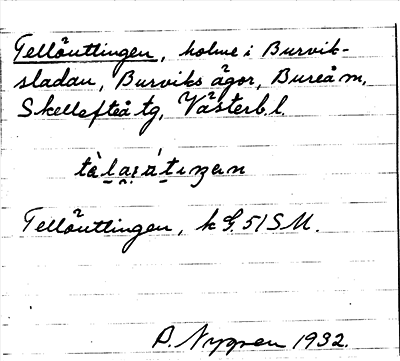 Tellöuttingen, holme i Burvik-
sladan, Burviks ägor, Bureå m,
Skellefteå tg, Västerb. l.
Tellöuttingen, k G. 51 S M.
B. Nygren 1932.